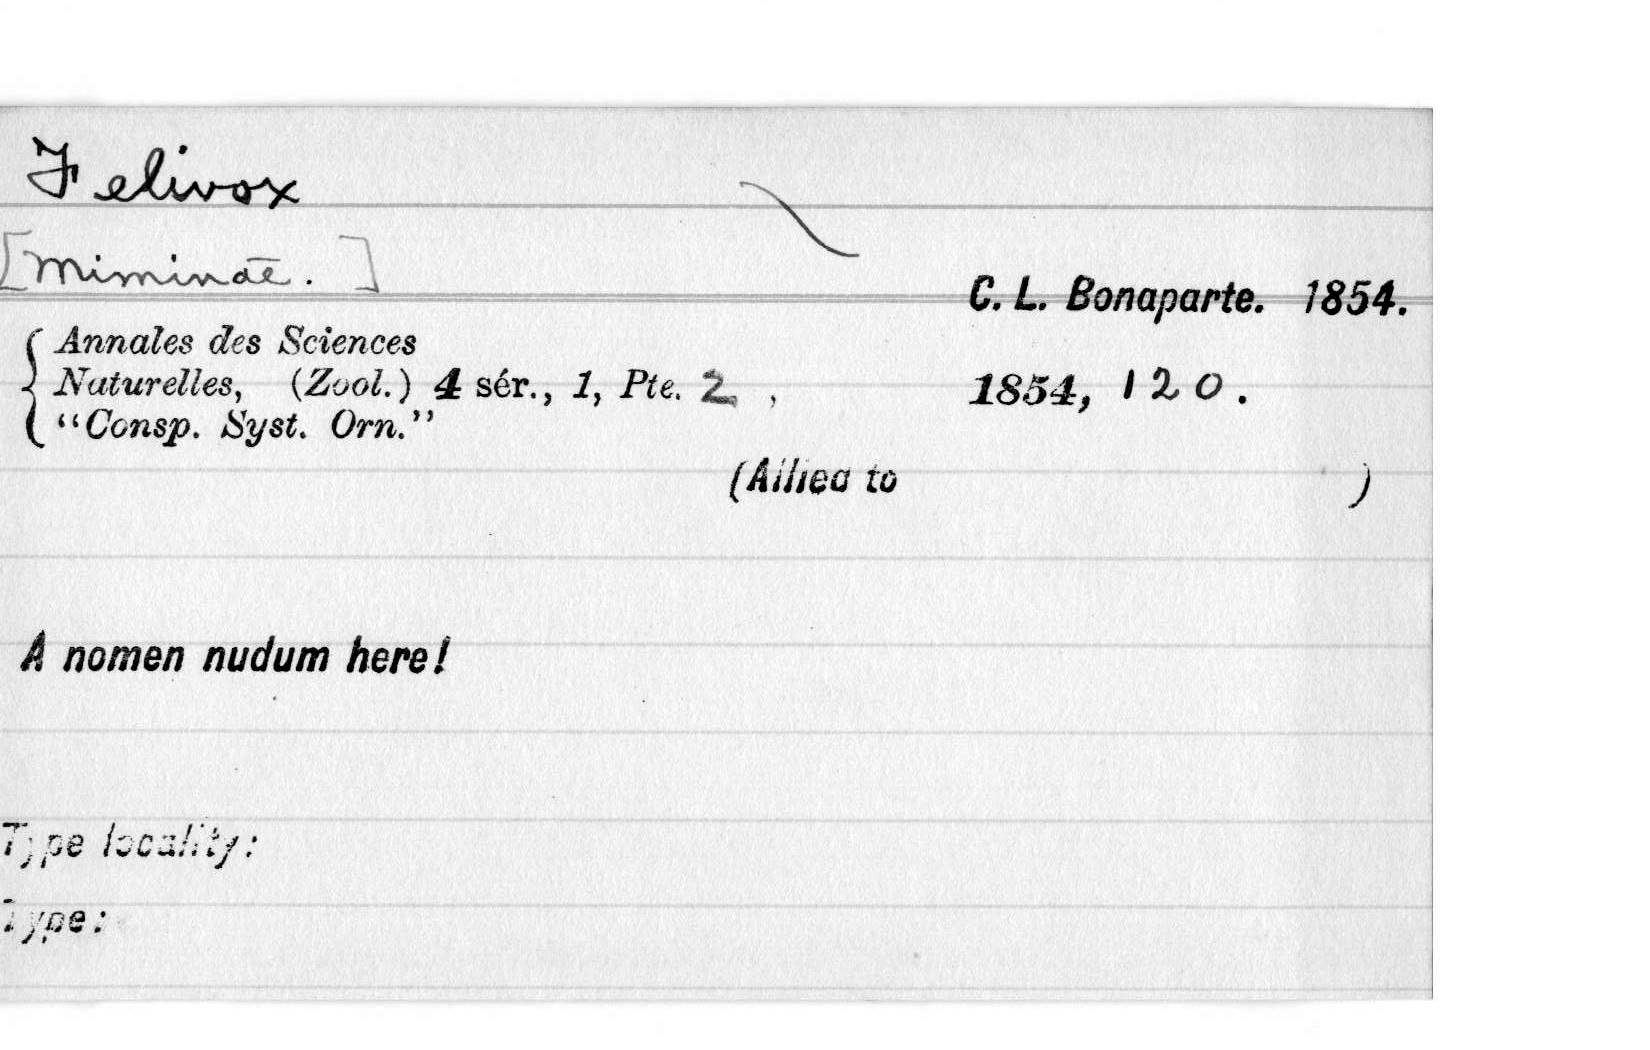 Felivox
[Miminae.]
C. L. Bonaparte. 1854.
Annales des Sciences
Naturelles, (Zool.) 4 sér., 1, Pte. 2, 1854, 120.
"Consp. Syst. Orn."
(Allied to )
A nomen nudum here!
Type locality:
Type: